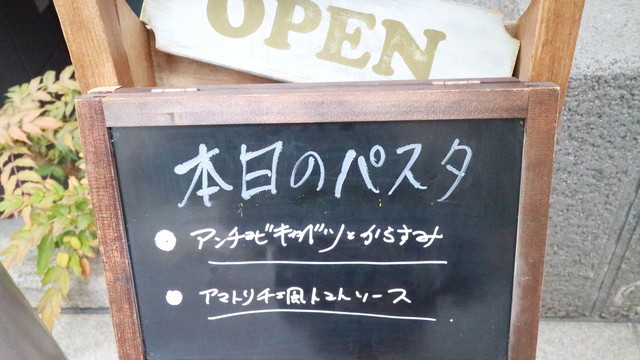 OPEN
本日のパスタ
アンチョビキャベツとからすみ
アマトリチャーナ風トマトソース